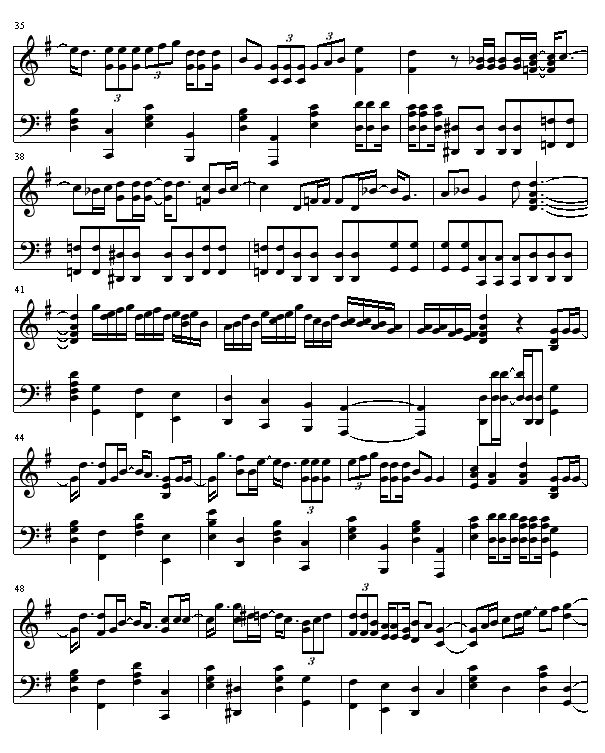 35
3 3 3 3
38
41
44
3 3
48
3 3